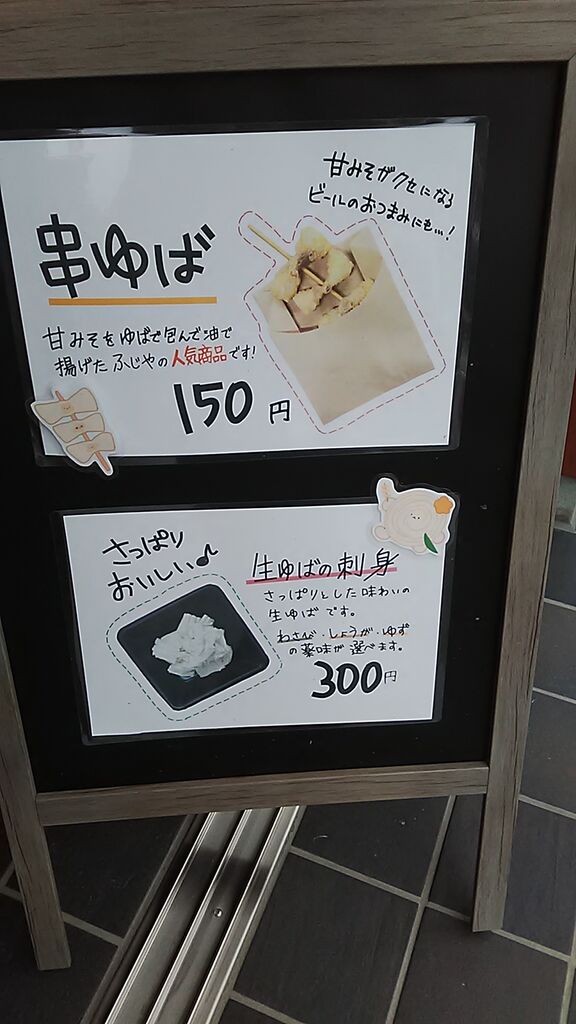 甘みそがクセになる
ビールのおつまみにも…!
串ゆば
甘みそをゆばで包んで油で
揚げたふじやの人気商品です!
150円
さっぱり
おいしい♪
生ゆばの刺身
さっぱりとした味わいの
生ゆばです。
わさび・しょうが・ゆず
の薬味が選べます。
300円